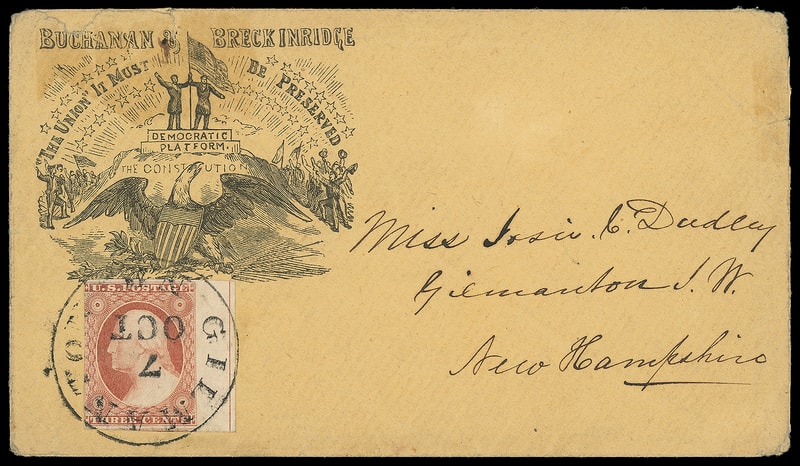 BUCHANAN & BRECKINRIDGE
"THE UNION" IT MUST BE PRESERVED
DEMOCRATIC
PLATFORM.
THE CONSTITUTION
Miss Josie C. Dudley
Gilmanton I. W.
New Hampshire
U.S. POSTAGE
OCT
7
THREE CENTS